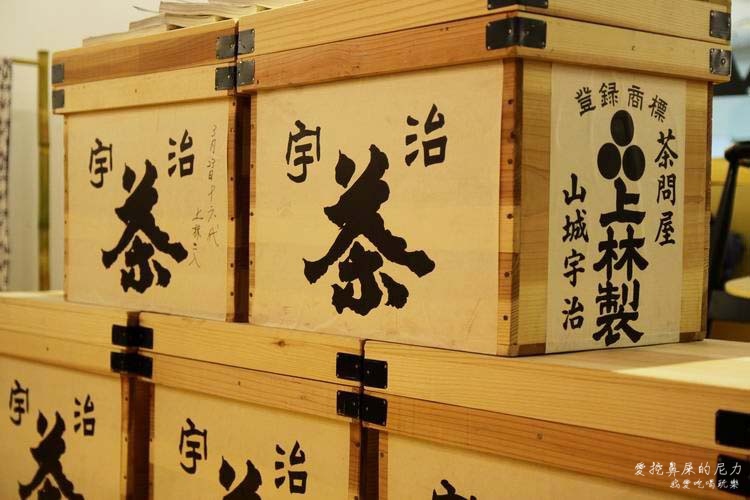 宇治
茶
3月23日 十六代
上林三入
宇治
茶
登録商標
茶問屋
上林製
山城宇治
宇治
茶
宇治
茶
愛挖鼻屎的尼力
我愛吃喝玩樂